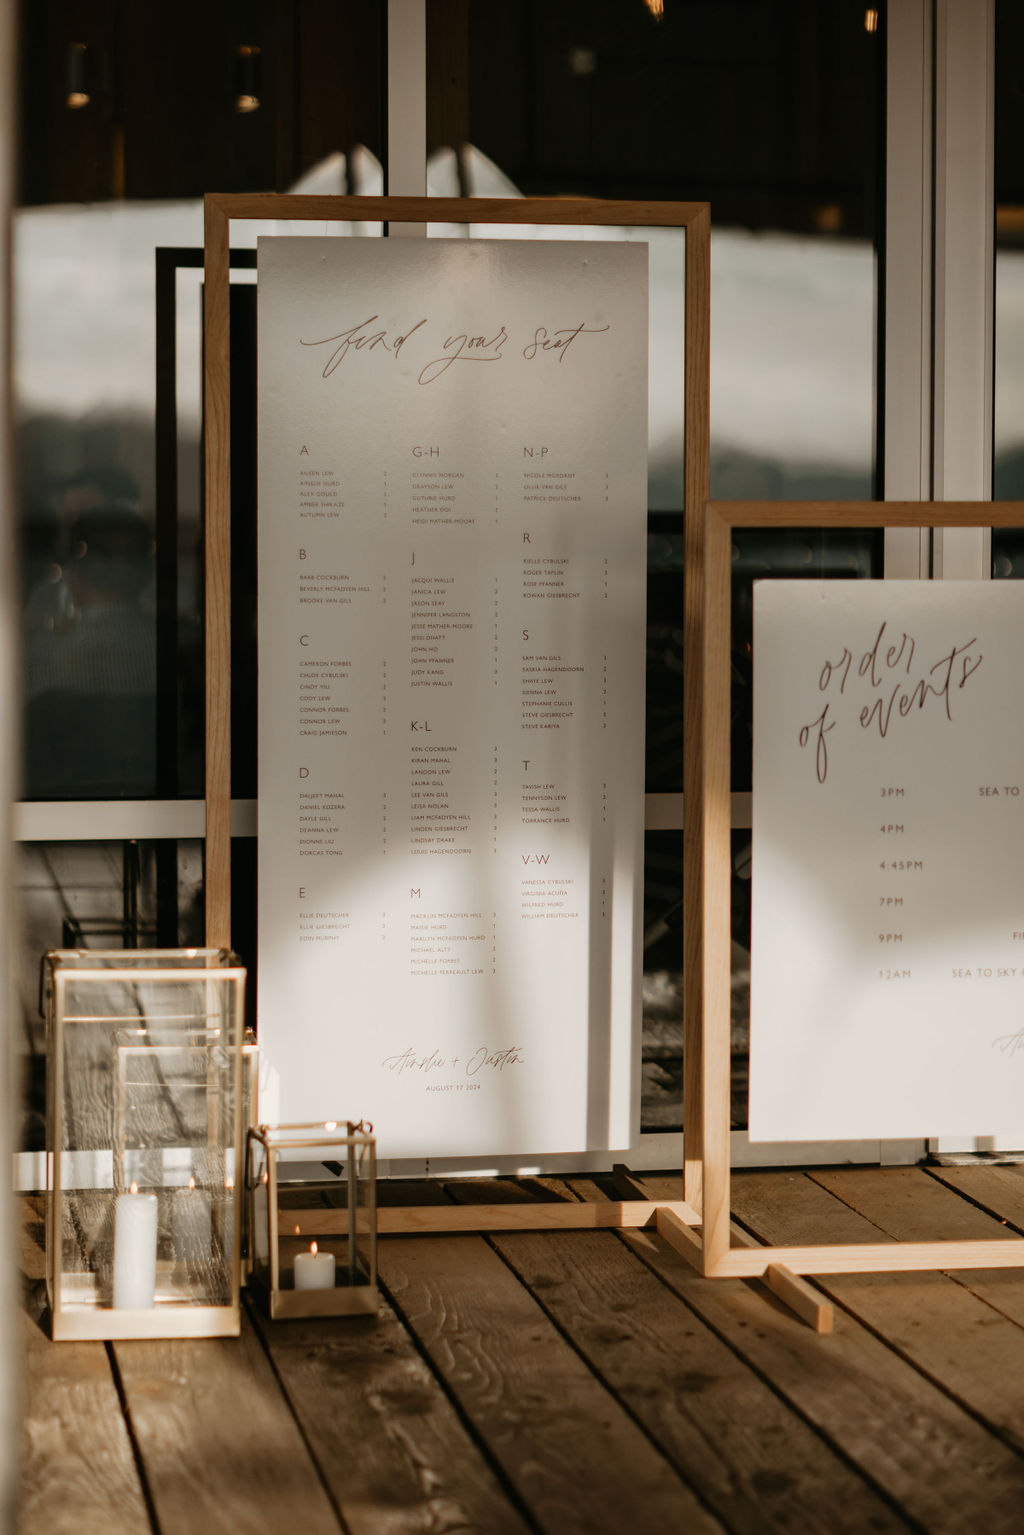 find your seat
A
AILEEN LEW 2
AINSLIE HURD 1
ALEX GOULD 2
AMBER SHIKAZE 1
AUTUMN LEW
B
BARB COCKBURN 3
BEVERLY MCFADYEN HILL 3
BROOKE VAN GILS 3
C
CAMERON FORBES 2
CHLOE CYBULSKI 2
CINDY YIU 2
CODY LEW 3
CONNOR FORBES 2
CONNOR LEW 3
CRAIG JAMIESON 1
D
DALJEET MAHAL 3
DANIEL KOZERA 2
DAYLE GILL 2
DEANNA LEW 2
DIONNE LIU 2
DORCAS TONG 1
E
ELLIE DEUTSCHER 3
ELLIE GIESBRECHT 3
EDIN MURPHY
G-H
GLYNNIS MORGAN
GRAYSON LEW
GUTHRIE HURD 1
HEATHER DOI 2
HEIDI MATHER-MOORE 1
J
JACQUI WALLIS 1
JANICA LEW 2
JASON SEAY 2
JENNIFER LANGSTON 2
JESSE MATHER-MOORE 1
JESSI DHATT 2
JOHN HO 2
JOHN PFANNER 1
JUDY KANG 3
JUSTIN WALLIS 1
K-L
KEN COCKBURN 3
KIRAN MAHAL 3
LANDON LEW 2
LAURA GILL 2
LEE VAN GILS 3
LEISA NOLAN 3
LIAM MCFADYEN HILL 3
LINDEN GIESBRECHT 3
LINDSAY DRAKE 1
LOUIS HAGENDOORN 2
M
MACKLIN MCFADYEN HILL 3
MAISIE HURD 1
MARILYN MCFADYEN HURD 1
MICHAEL ALTY 3
MICHELLE FORBES 2
MICHELLE PERREAULT LEW 3
N-P
NICOLE MORDANT 3
OLLIE VAN GILS 3
PATRICK DEUTSCHER 3
R
RIELLE CYBULSKI 2
ROGER TAPLIN 3
ROSE PFANNER 1
ROWAN GIESBRECHT 3
S
SAM VAN GILS 3
SASKIA HAGENDOORN 2
SHAYE LEW 3
SIENNA LEW 2
STEPHANIE CULLIS 1
STEVE GIESBRECHT 3
STEVE KARIYA 2
T
TAVISH LEW 3
TENNYSON LEW 2
TESSA WALLIS 1
TORRANCE HURD 1
V-W
VANESSA CYBULSKI 2
VIRGINIA ACUÑA 3
WILFRED HURD 1
WILLIAM DEUTSCHER 3
Ainslie + Justin
AUGUST 17 2024
order
of events
3PM SEA TO
4PM
4:45PM
7PM
9PM
12AM SEA TO SKY